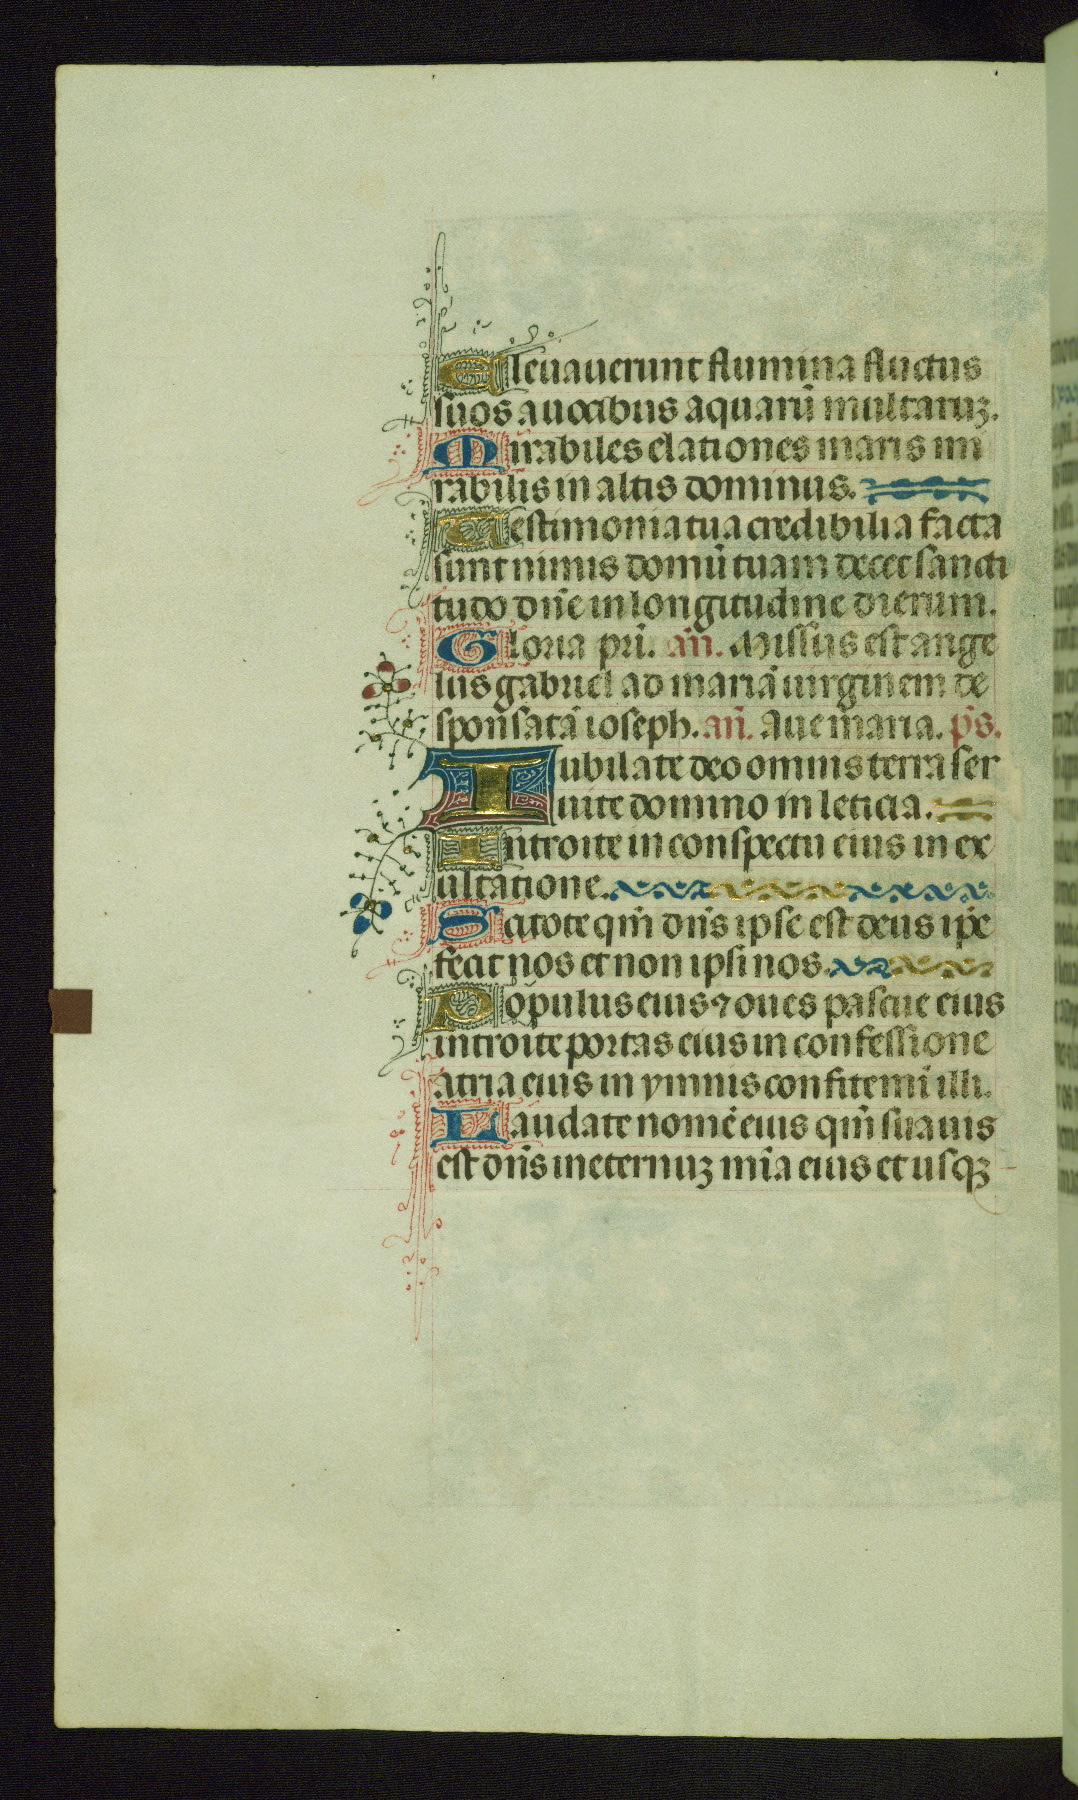 Eleuauerunt flumina fluctus
suos a uocibus aquarū multaruz.
Mirabiles elationes maris mi
rabilis in altis dominus.
Testimonia tua credibilia facta
sunt nimis domū tuam decet sancti
tudo dn̄e in longitudine dierum.
Gloria pr̄i. an̄. Missus est ange
lus gabriel ad mariā uirginem de
sponsatā ioseph. an̄. Aue maria. p̄s.
Iubilate deo omnis terra ser
uite domino in leticia.
Introite in conspectu eius in ex
ultatione.
Scitote qm̄ dn̄s ipse est deus ip̄e
fecit nos et non ipsi nos.
Populus eius ⁊ oues pascue eius
introite portas eius in confessione
atria eius in ymnis confitemī illi.
Laudate nomē eius qm̄ suauis
est dn̄s in eternuz mīa eius et usqꝫ